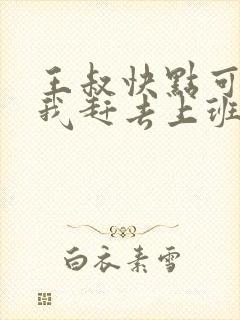 王叔快點可
我赶去上班
白衣素雪